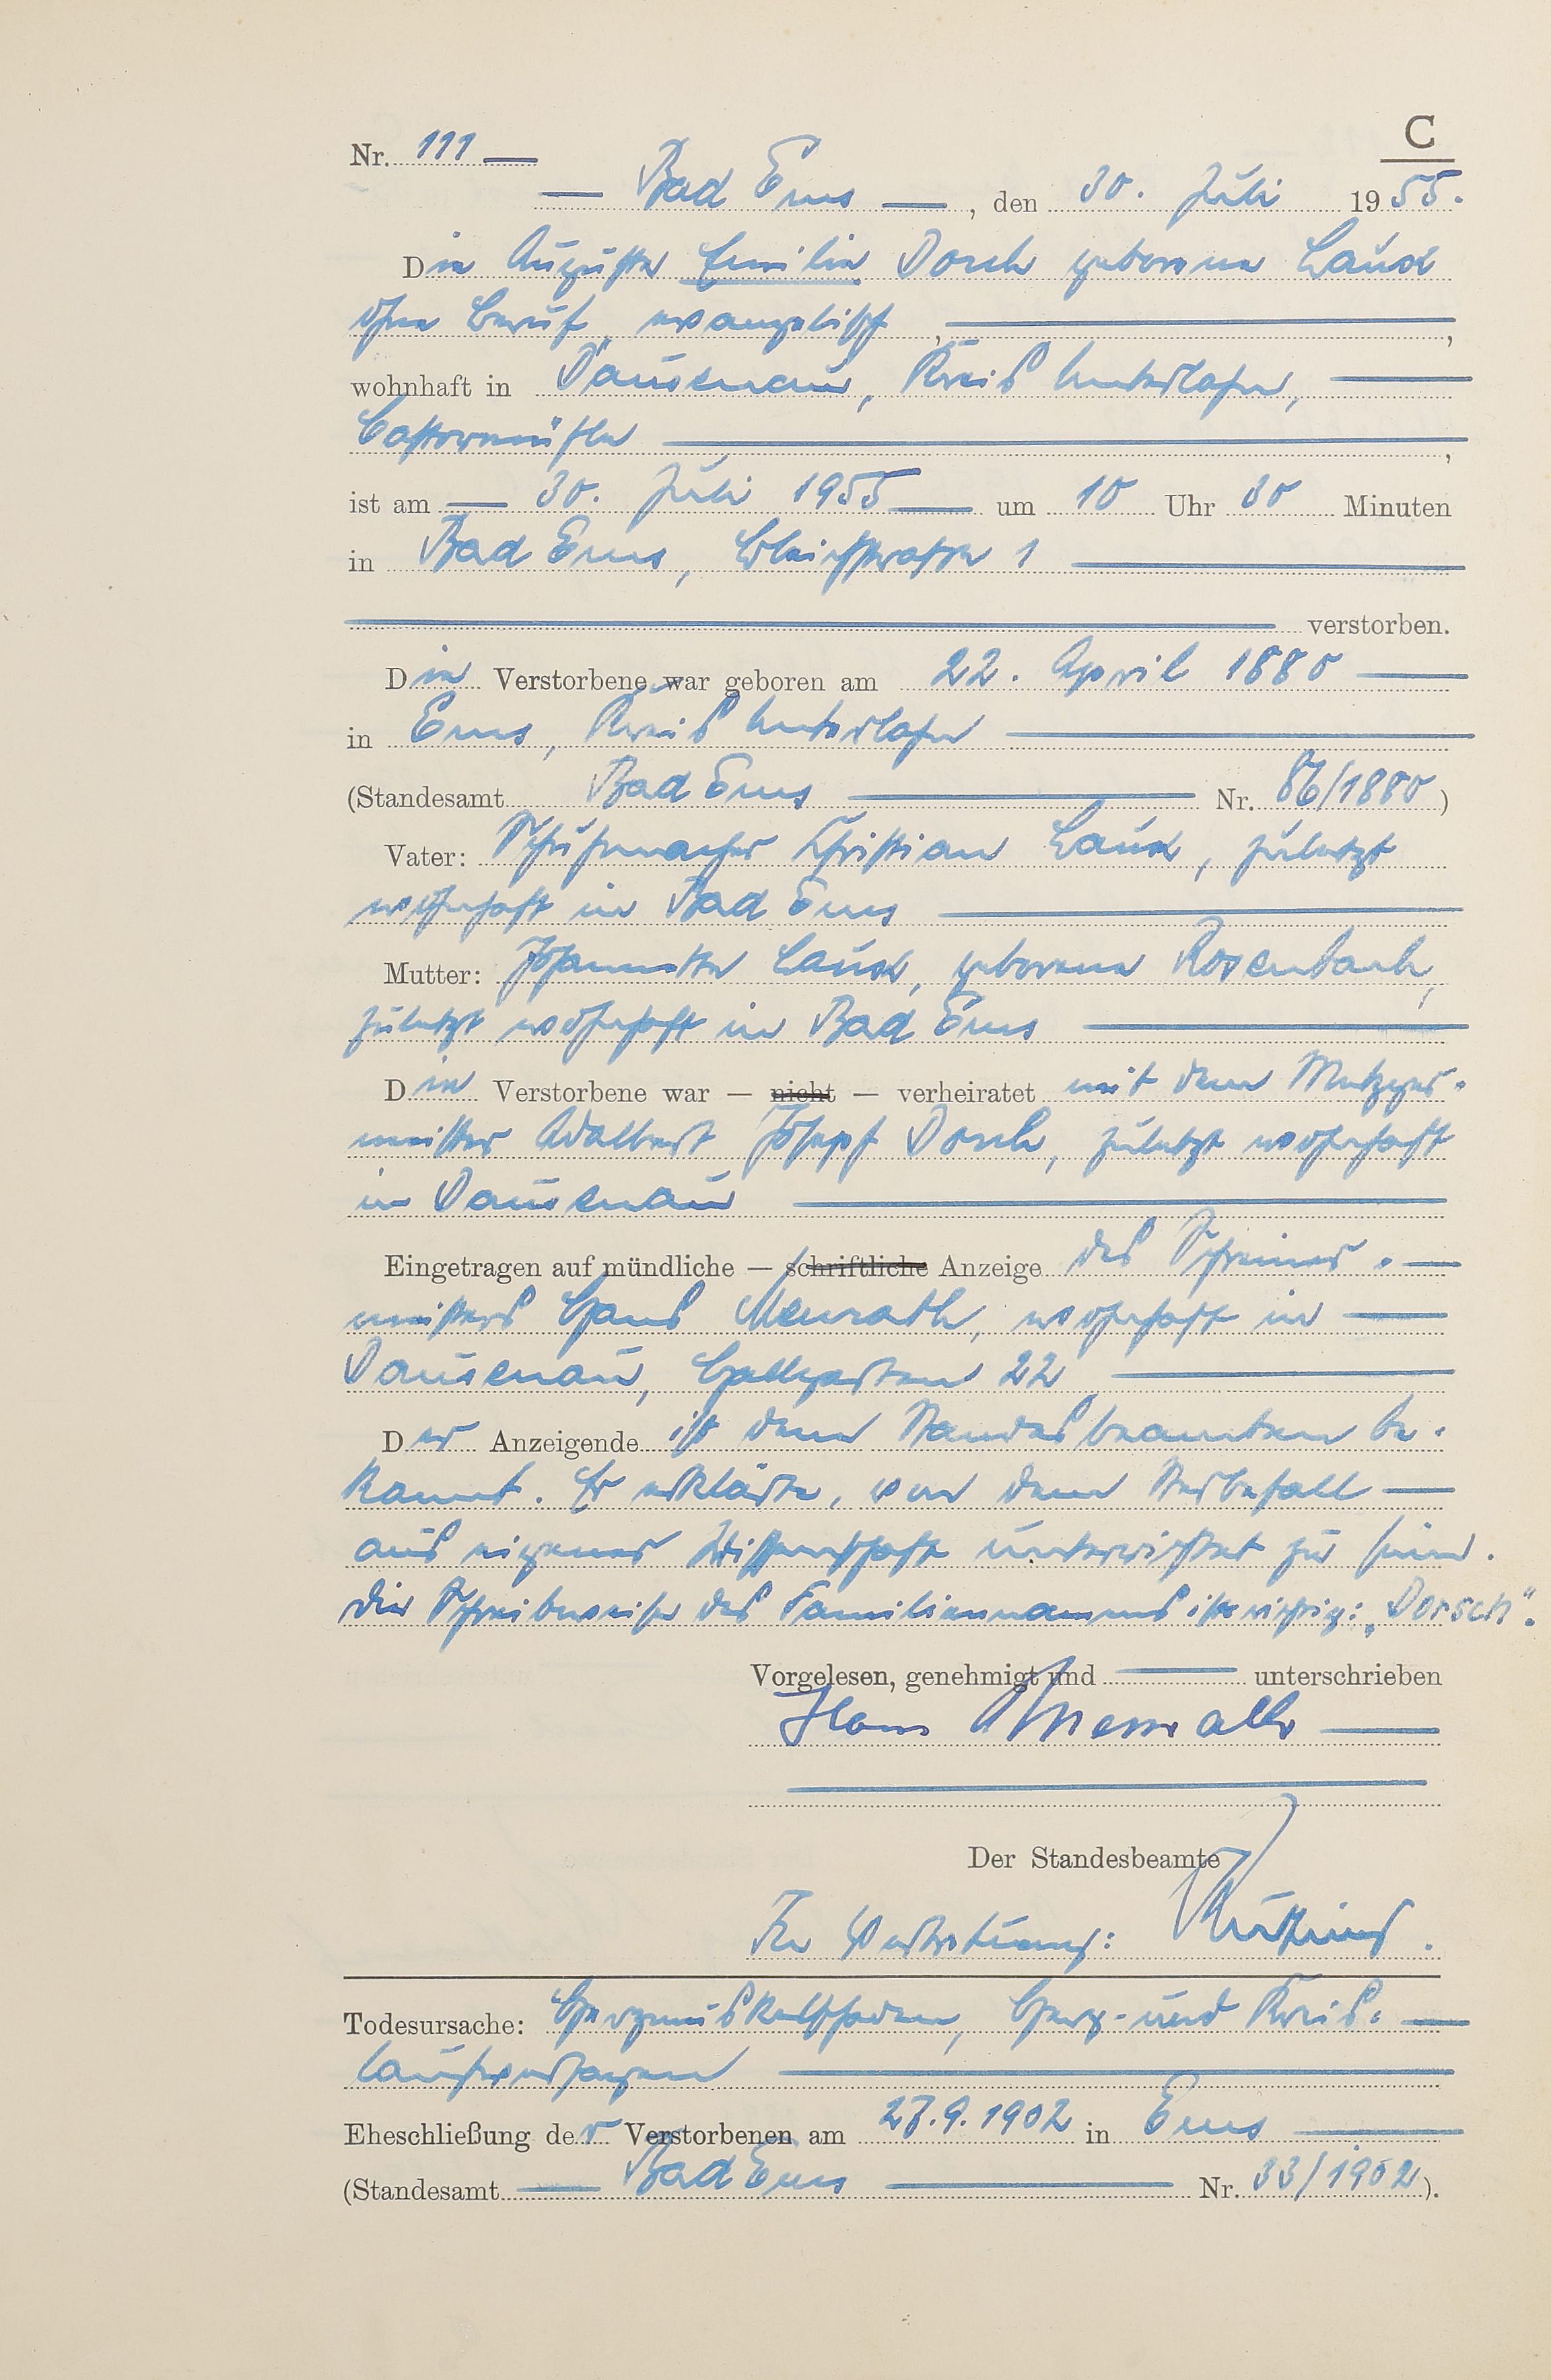 C
Nr. 111
Bad Ems, den 30. Juli 1955.
Die Auguste Emilie Dorsch geborene Lauck
ohne Beruf, evangelisch,
wohnhaft in Dausenau, Kreis Unterlahn,
ist am 30. Juli 1955 um 10 Uhr 30 Minuten
in Bad Ems, Bleichstrasse 1
verstorben.
Die Verstorbene war geboren am 22. April 1880
in Ems, Kreis Unterlahn
(Standesamt Bad Ems Nr. 86/1880)
Vater: Schuhmacher Christian Lauck, zuletzt
wohnhaft in Bad Ems
Mutter: Johannette Lauck, geborene Rosenbach,
zuletzt wohnhaft in Bad Ems
Die Verstorbene war — nicht — verheiratet mit dem Metzger-
meister Adalbert Joseph Dorsch, zuletzt wohnhaft
in Dausenau
Eingetragen auf mündliche — schriftliche Anzeige des Schreiner-
meisters Hans Menrath, wohnhaft in
Dausenau, Hallgarten 22
Der Anzeigende ist dem Standesbeamten be-
kannt. Er erklärte, von dem Sterbefall
aus eigener Wissenschaft unterrichtet zu sein.
Die Schreibweise des Familiennamens ist richtig: „Dorsch“.
Vorgelesen, genehmigt und unterschrieben
Hans Menrath
Der Standesbeamte
In Vertretung:
Todesursache: Herzmuskelschaden, Herz- und Kreis-
laufversagen
Eheschließung der Verstorbenen am 27.9.1902 in Ems
(Standesamt Bad Ems Nr. 33/1902).